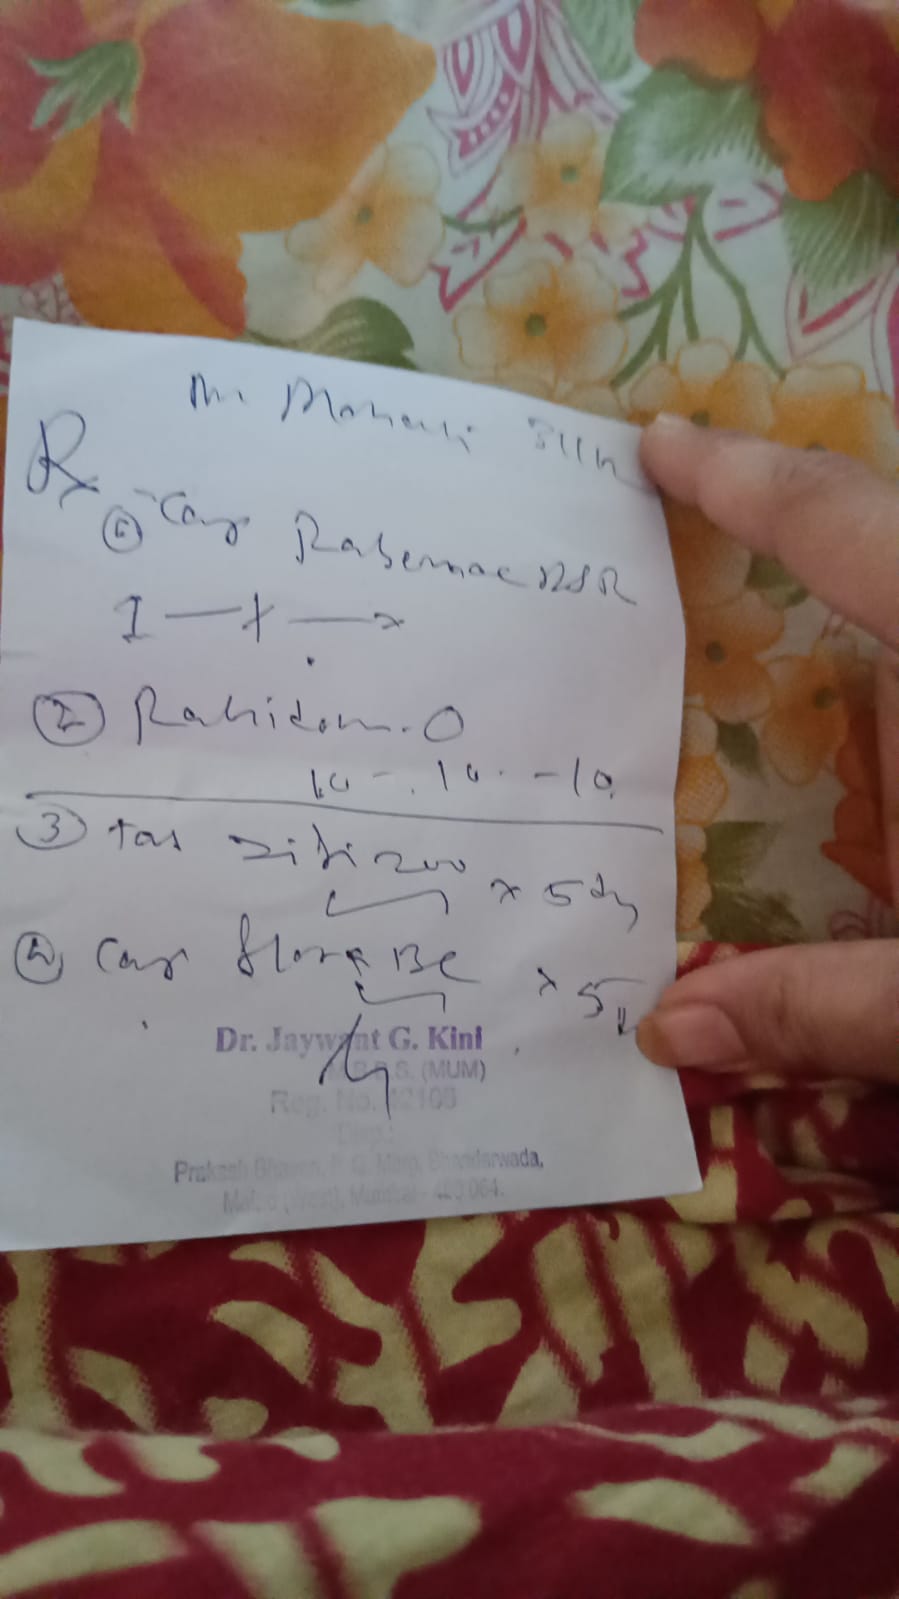 Mr.
Rx
① Cap Rabemac DSR
1 — x — x
② Ranidom-O
10 - 10 - 10
③ Tab Zifi 200 x 5 dy
④ Cap Flora BC x 5
Dr. Jaywant G. Kini
M.B.B.S. (MUM)
Reg. No.
Disp.:
Prakash Bhavan, Marg, Bhandarwada,
Malad (West), Mumbai - 400 064.